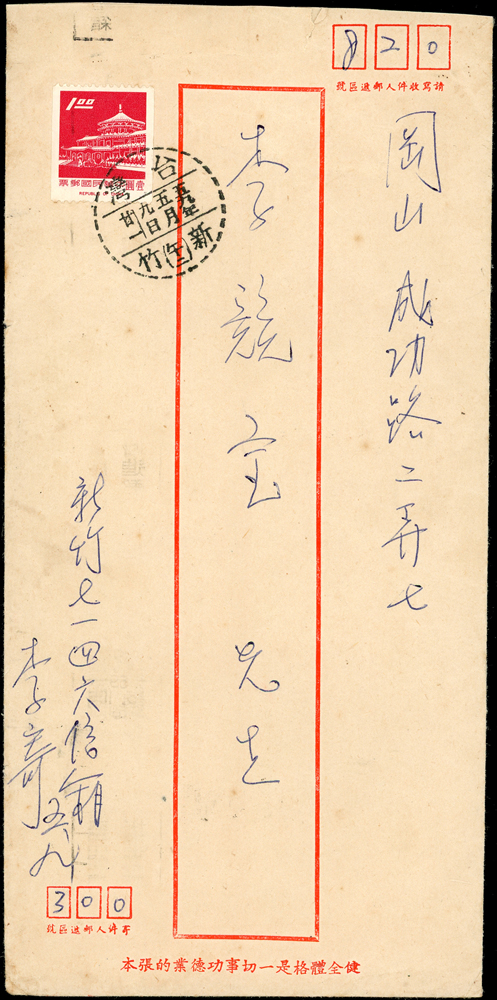 820
請寫收件人郵遞區號
岡山 成功路二弄七
李競宝 先生
1.00
台灣
新竹
新竹七一四六信箱
李寄
五九
300
寄件人郵遞區號
健全體格是一切事功德業的張本